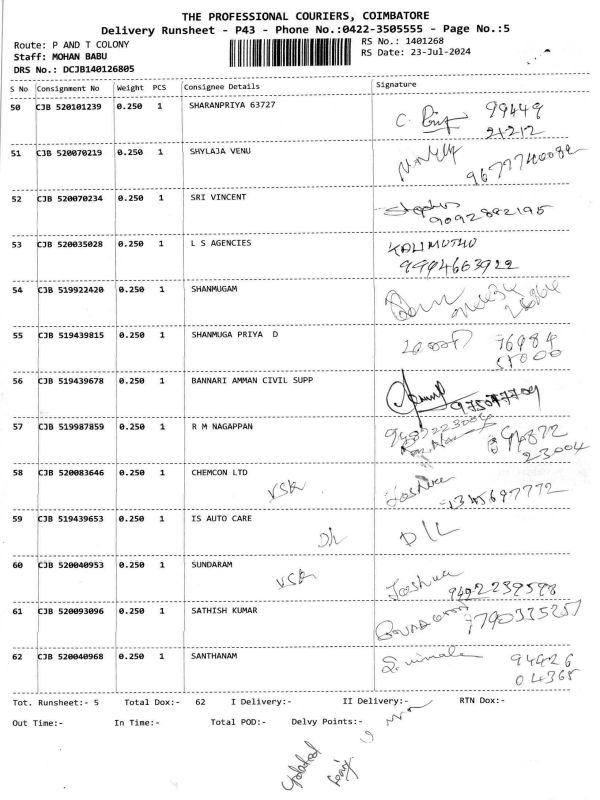 THE PROFESSIONAL COURIERS, COIMBATORE
Delivery Runsheet - P43 - Phone No.:0422-3505555 - Page No.:5
Route: P AND T COLONY
RS No.: 1401268
Staff: MOHAN BABU
RS Date: 23-Jul-2024
DRS No.: DCJB140126805
S No Consignment No Weight PCS Consignee Details Signature
50 CJB 520101239 0.250 1 SHARANPRIYA 63727
99449
21212
51 CJB 520070219 0.250 1 SHYLAJA VENU
52 CJB 520070234 0.250 1 SRI VINCENT
9092882195
53 CJB 520035028 0.250 1 L S AGENCIES KALIMUTHU
9994663922
54 CJB 519922420 0.250 1 SHANMUGAM
55 CJB 519439815 0.250 1 SHANMUGA PRIYA D
56 CJB 519439678 0.250 1 BANNARI AMMAN CIVIL SUPP
57 CJB 519987859 0.250 1 R M NAGAPPAN
23004
58 CJB 520083646 0.250 1 CHEMCON LTD
VSK Joshua
59 CJB 519439653 0.250 1 IS AUTO CARE
60 CJB 520040953 0.250 1 SUNDARAM
VSK Joshua
61 CJB 520093096 0.250 1 SATHISH KUMAR
62 CJB 520040968 0.250 1 SANTHANAM
94426
04365
Tot. Runsheet:- 5 Total Dox:- 62 I Delivery:- II Delivery:- RTN Dox:-
Out Time:- In Time:- Total POD:- Delvy Points:-